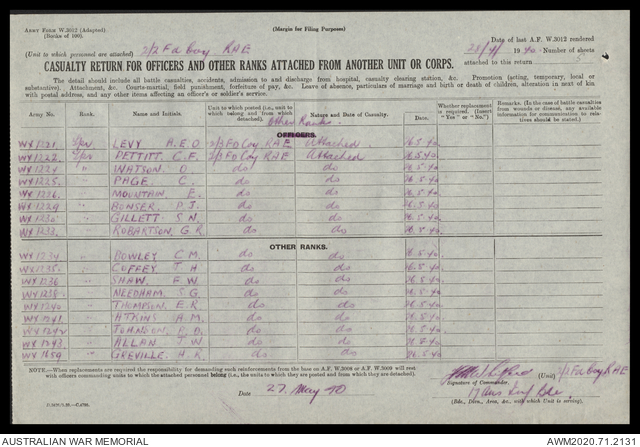 ARMY FORM W.3012 (Adapted)
(Books of 100).
(Margin for Filing Purposes)
Date of last A.F. W.3012 rendered
(Unit to which personnel are attached) 2/2 Fd Coy RAE
Number of sheets
attached to this return 5
CASUALTY RETURN FOR OFFICERS AND OTHER RANKS ATTACHED FROM ANOTHER UNIT OR CORPS.
The detail should include all battle casualties, accidents, admission to and discharge from hospital, casualty clearing station, &c. Promotion (acting, temporary, local or
substantive). Attachment, &c. Courts-martial, field punishment, forfeiture of pay, &c. Leave of absence, particulars of marriage and birth or death of children, alteration in next of kin
with postal address, and any other items affecting an officer's or soldier's service.
Army No. Rank. Name and Initials. Unit to which posted (i.e., unit to which belonging and from which detached). Nature and Date of Casualty. Date. Whether replacement is required. (Insert "Yes" or "No.") Remarks. (In the case of battle casualties from wounds or disease, any available information for communication to relatives should be stated.)
Other Ranks
OFFICERS.
WX1221 Spr LEVY A.E.O 2/3 Fd Coy RAE Attached 26.5.40
WX1222 Spr PETTITT C.F. 2/3 Fd Coy RAE Attached 26.5.40
WX1224 " WATSON O. do do 26.5.40
WX1225 " PAGE C. do do 26.5.40
WX1226 " MOUNTAIN E. do do 26.5.40
WX1229 " BONSER P.J. do do 26.5.40
WX1230 " GILLETT S.N. do do 26.5.40
WX1233 " ROBARTSON G.R. do do 26.5.40
OTHER RANKS.
WX1234 " DOWLEY C.M. do do 26.5.40
WX1235 " COFFEY J.H do do 26.5.40
WX1236 " SHAW F.W do do 26.5.40
WX1239 " NEEDHAM S.G. do do 26.5.40
WX1240 " THOMPSON E.R. do do 26.5.40
WX1241 " ATKINS A.M. do do 26.5.40
WX1242 " JOHNSON R.D. do do 26.5.40
WX1243 " ALLAN J.W. do do 26.5.40
WX1259 " GREVILLE H.R. do do 26.5.40
NOTE.—When replacements are required the responsibility for demanding such reinforcements from the base on A.F. W.3008 or A.F. W.3009 will rest
with officers commanding units to which the attached personnel belong (i.e., the units to which they are posted and from which they are detached).
(Unit) 2/1 Fd Coy RAE
Signature of Commander.
Date 27 May 40
17 Aus Inf Bde.
(Bde., Divn., Area, &c., with which Unit is serving).
AUSTRALIAN WAR MEMORIAL
AWM2020.71.2131